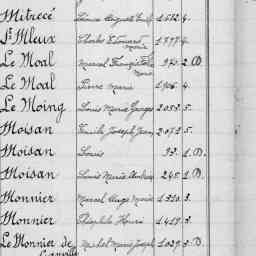 Mitrecé
St Mleux Charles Edouard Marie 1877 4.
Le Moal Marcel François Marie 2. D.
Le Moal Pierre Marie 1906 4.
Le Moing Louis Marie Georges 2053 5.
Moisan Emile Joseph Jean 2072 5.
Moisan Louis 93. 1. D.
Moisan Louis Marie 245 1. D.
Monnier Marcel Ange Marie 1320 3.
Monnier Théophile Henri 1419 3.
Le Monnier de Michel Marie Joseph 1029 3. D.